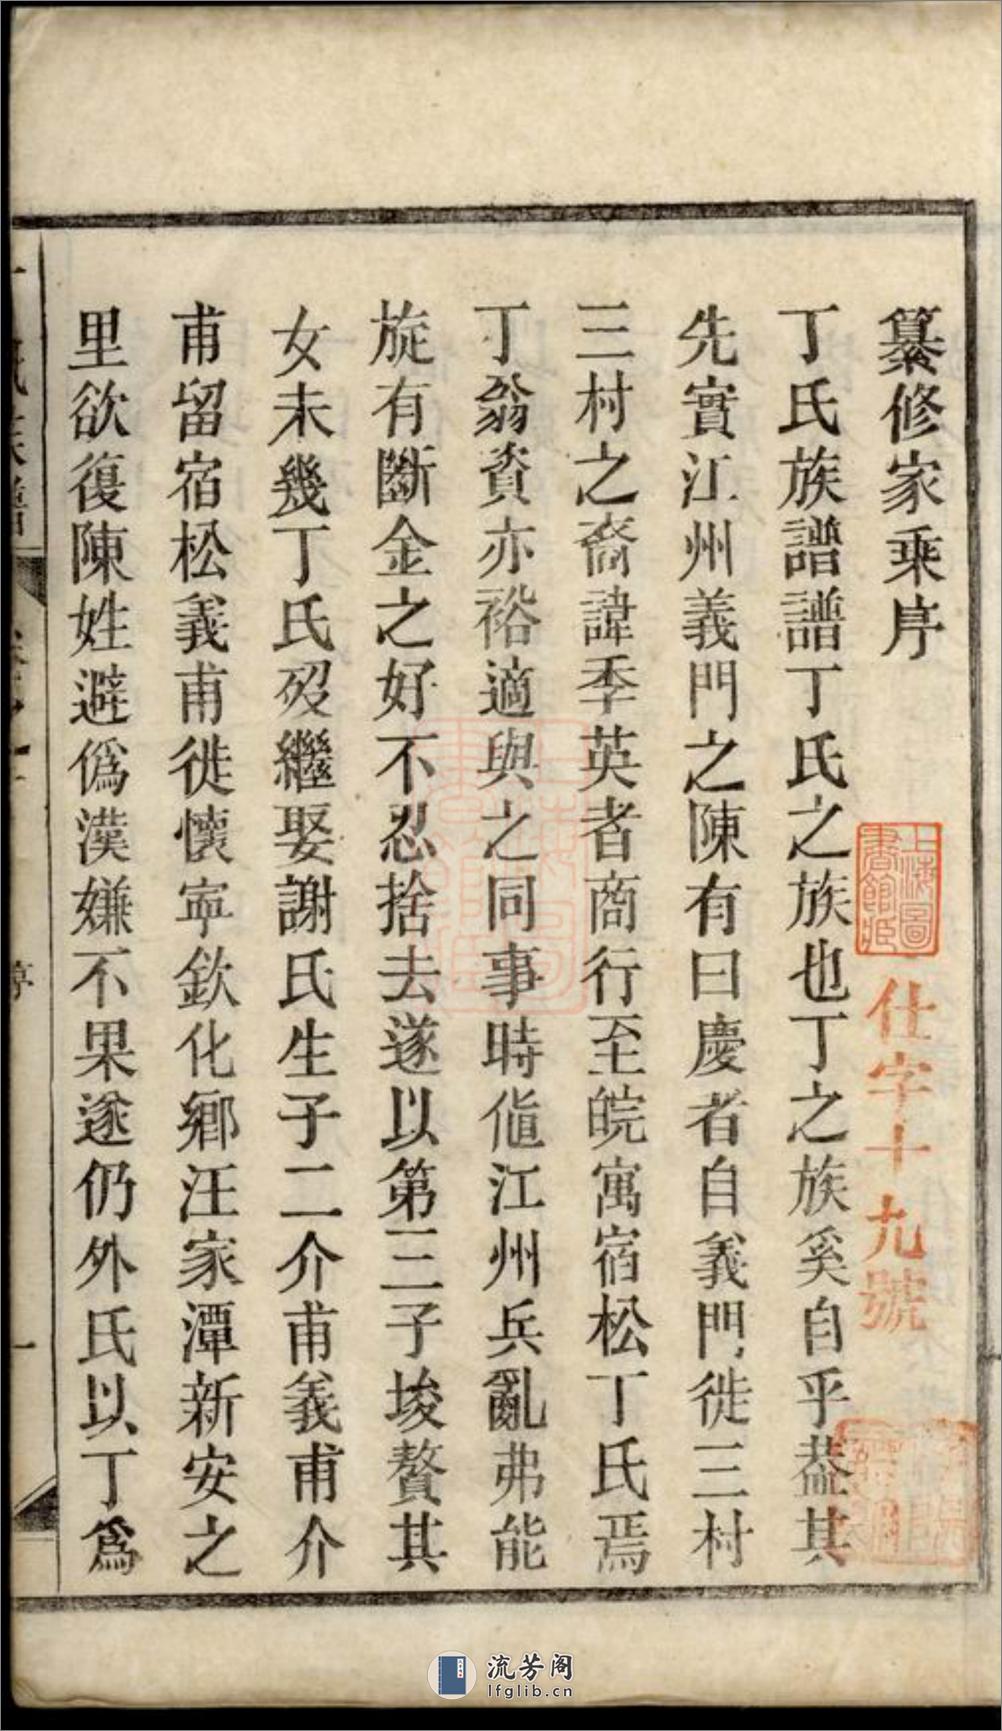 纂修家乘序
丁氏族譜譜丁氏之族也丁之族奚自乎葢其
先實江州義門之陳有曰慶者自義門徙三村
三村之裔諱季英者商行至皖寓宿松丁氏焉
丁翁資亦裕適與之同事時值江州兵亂弗能
旋有斷金之好不忍捨去遂以第三子埈贅其
女未幾丁氏歿繼娶謝氏生子二介甫義甫介
甫留宿松義甫徙懷寧欽化鄉汪家潭新安之
里欲復陳姓避僞漢嫌不果遂仍外氏以丁爲
上海圖書館藏
仕字十九號
流芳阁
lfglib.cn